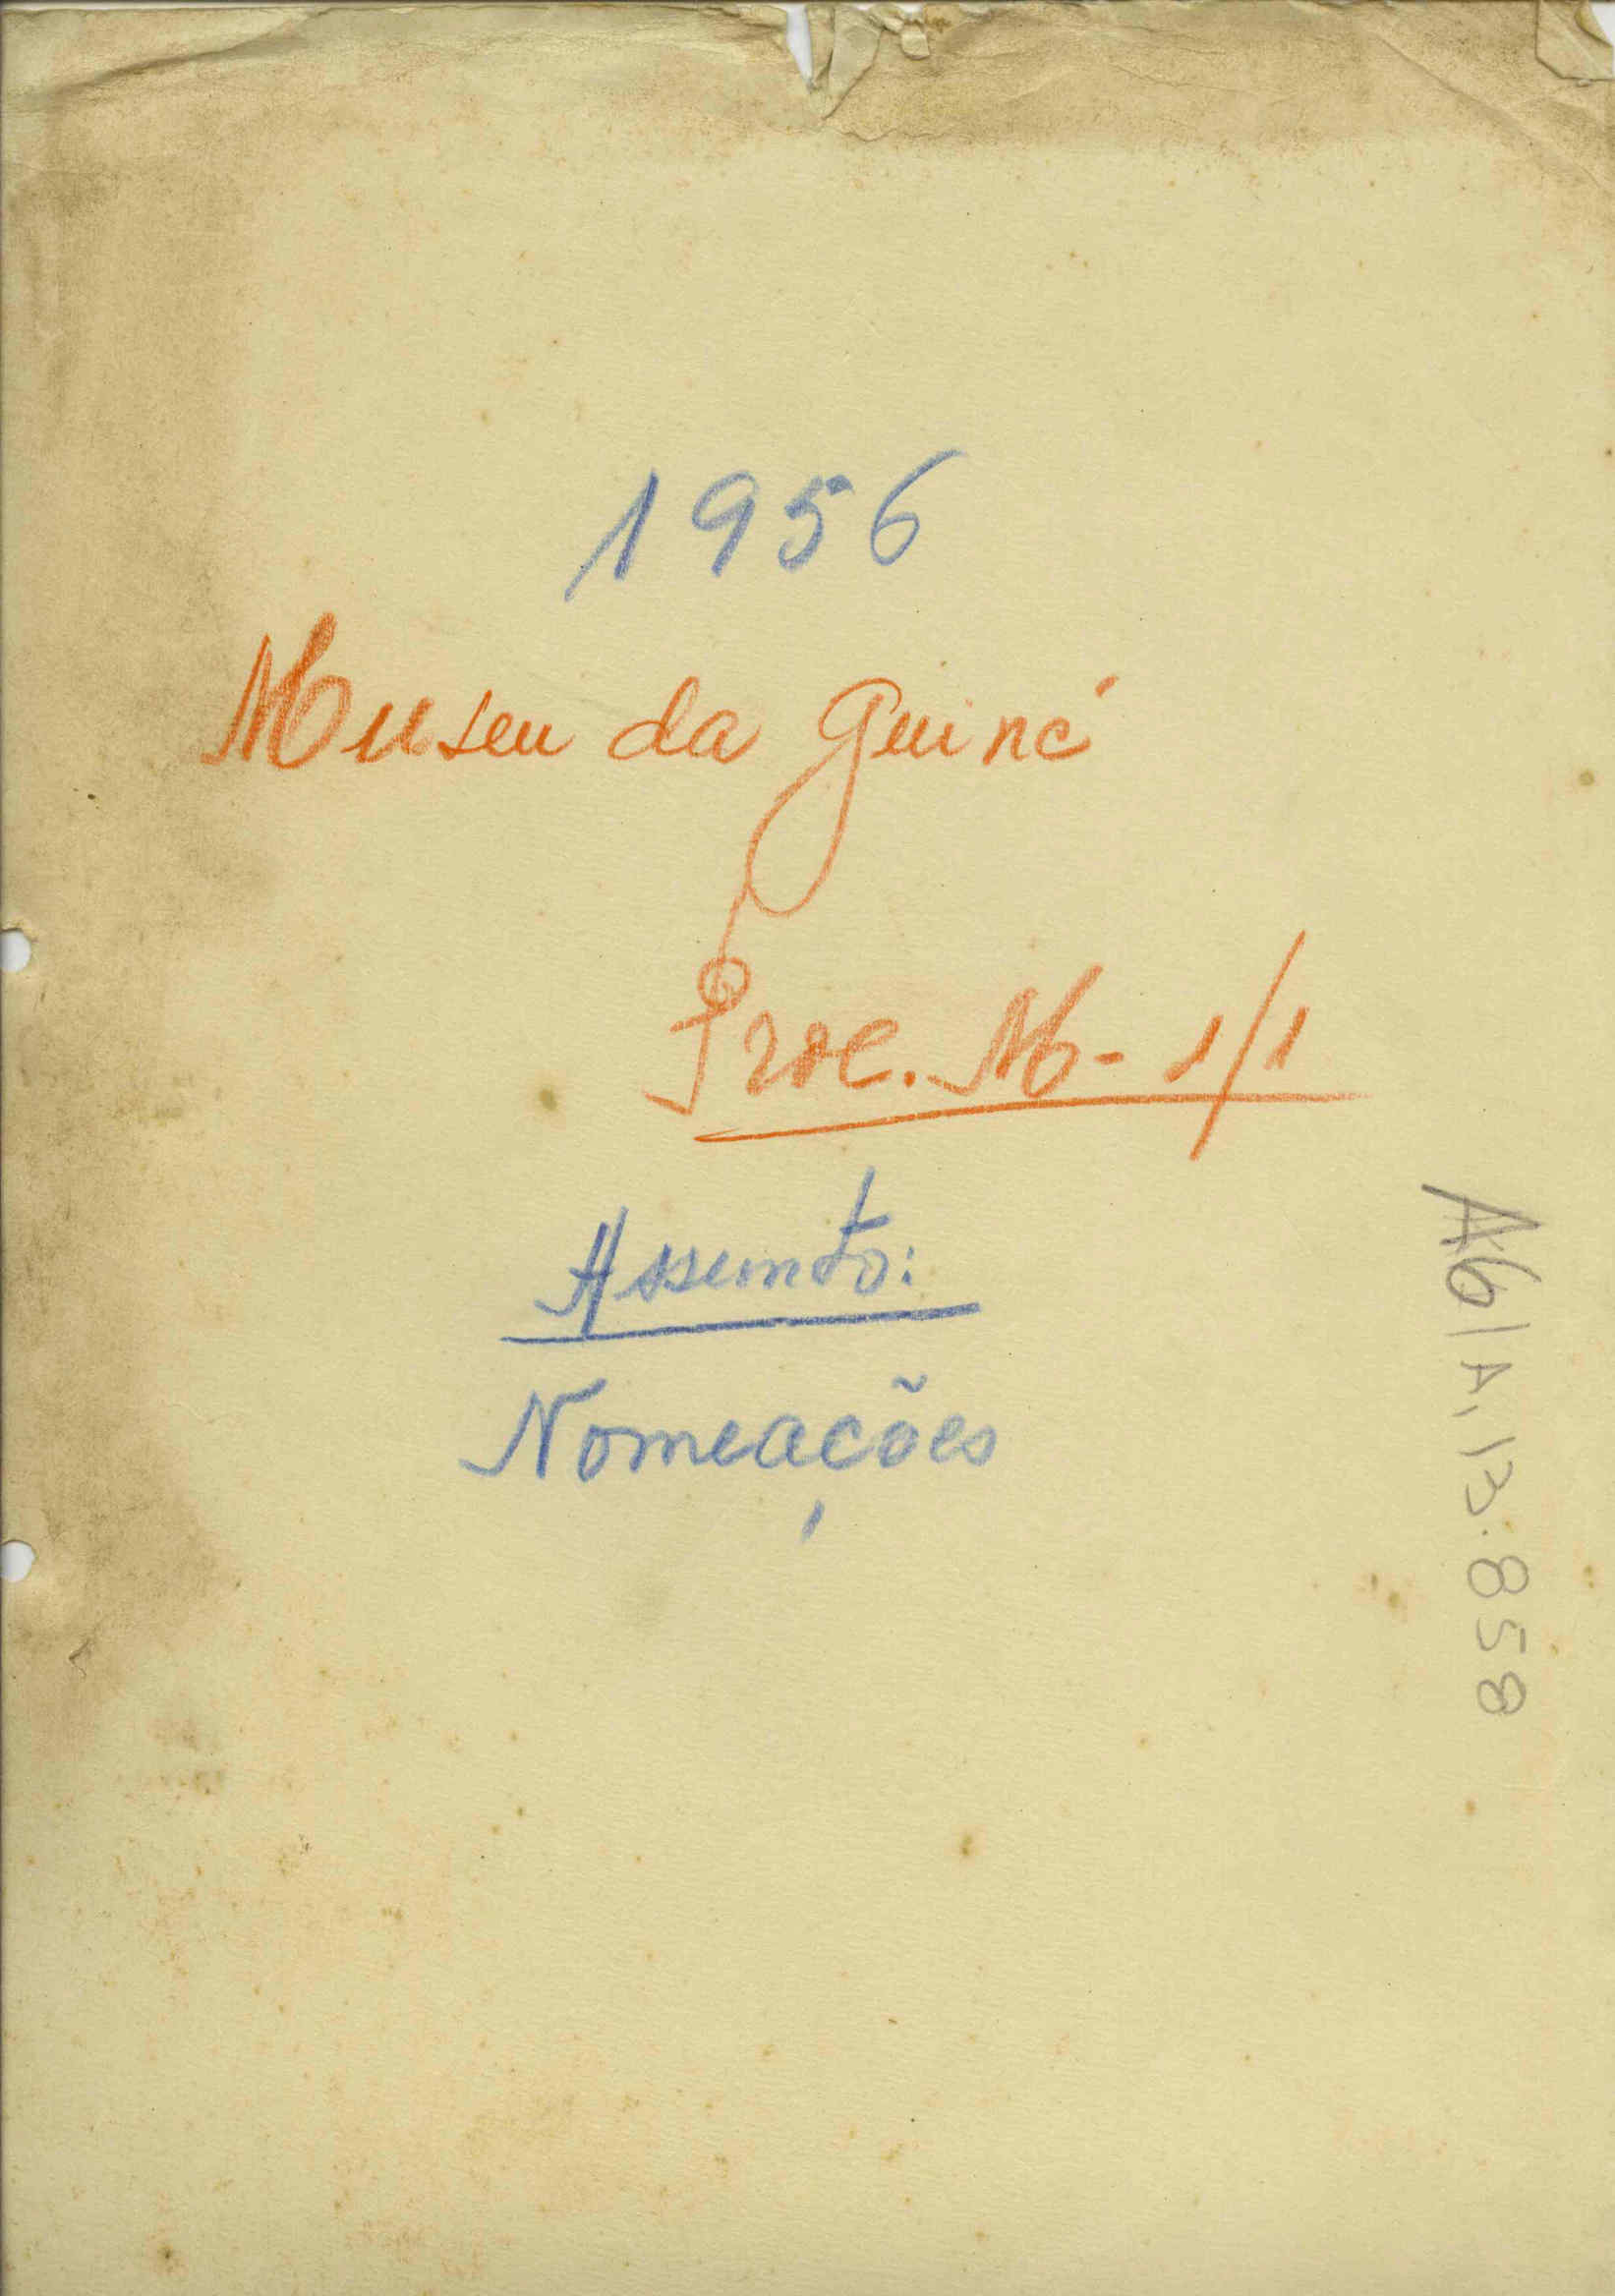 1956
Museu da Guiné
Proc. M-1/1
Assunto:
Nomeações
A6/A,13.858